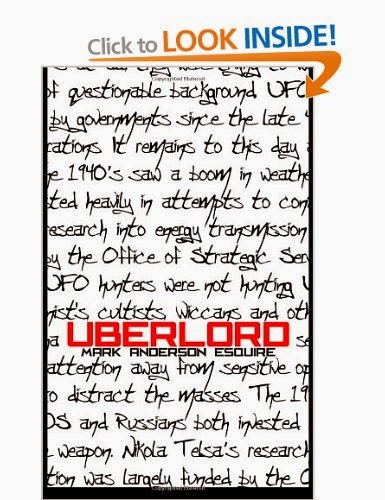 Click to LOOK INSIDE!
Copyrighted Material
of questionable background UFO
by governments since the late 4
rations. It remains to this day a
e 1940's saw a boom in weathe
ted heavily in attempts to con
research into energy transmission
by the Office of Strategic Ser
UFO hunters were not hunting U
nist's cultists, Wiccans and oth
UBERLORD
MARK ANDERSON ESQUIRE
attention away from sensitive op
to distract the masses. The 19
OS and Russians both invested
e weapon. Nikola Telsa's research
tion was largely funded by the O
Copyrighted Material